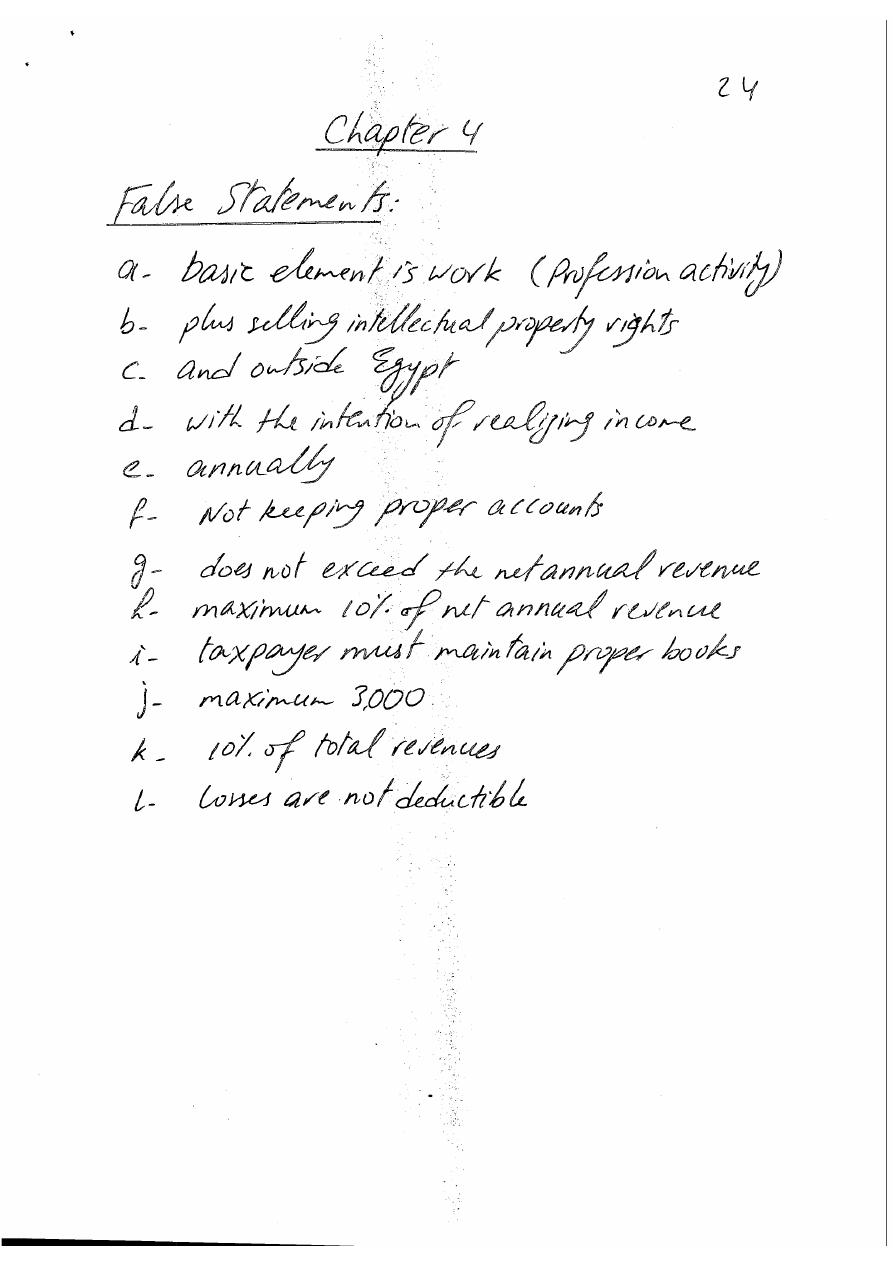 24
Chapter 4
False Statements:
a- basic element is work (Profession activity)
b- plus selling intellectual property rights
c- and outside Egypt
d- with the intention of realizing income
e- annually
f- Not keeping proper accounts
g- does not exceed the net annual revenue
h- maximum 10% of net annual revenue
i- taxpayer must maintain proper books
j- maximum 3,000
k- 10% of total revenues
l- losses are not deductible